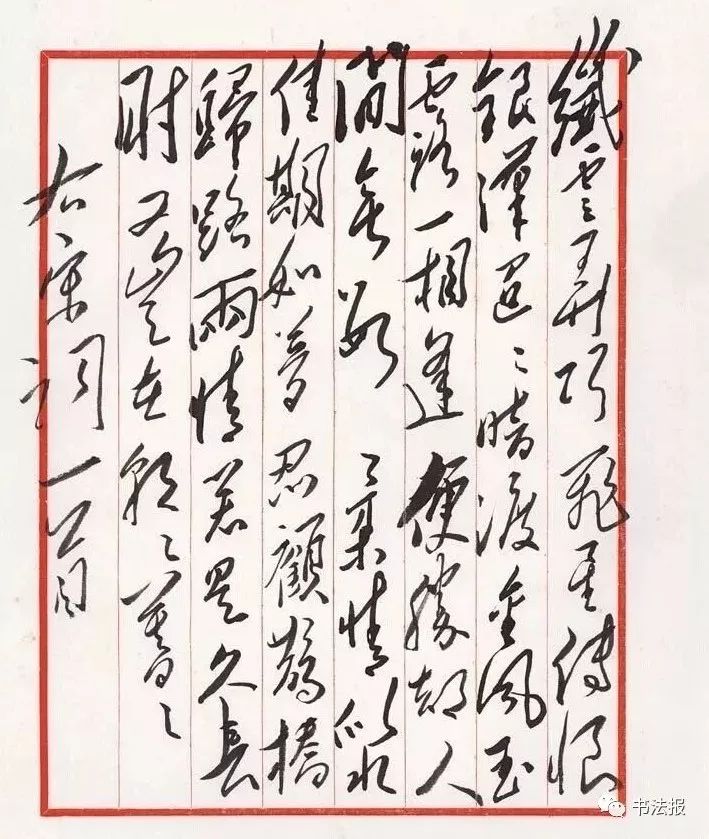 纖雲弄巧飛星傳恨
銀漢迢〻暗渡金風玉
露一相逢便勝却人
間無數 柔情似水
佳期如夢忍顧鵲橋
歸路兩情若是久長
時又豈在朝〻暮〻
右宋詞一首
书法报